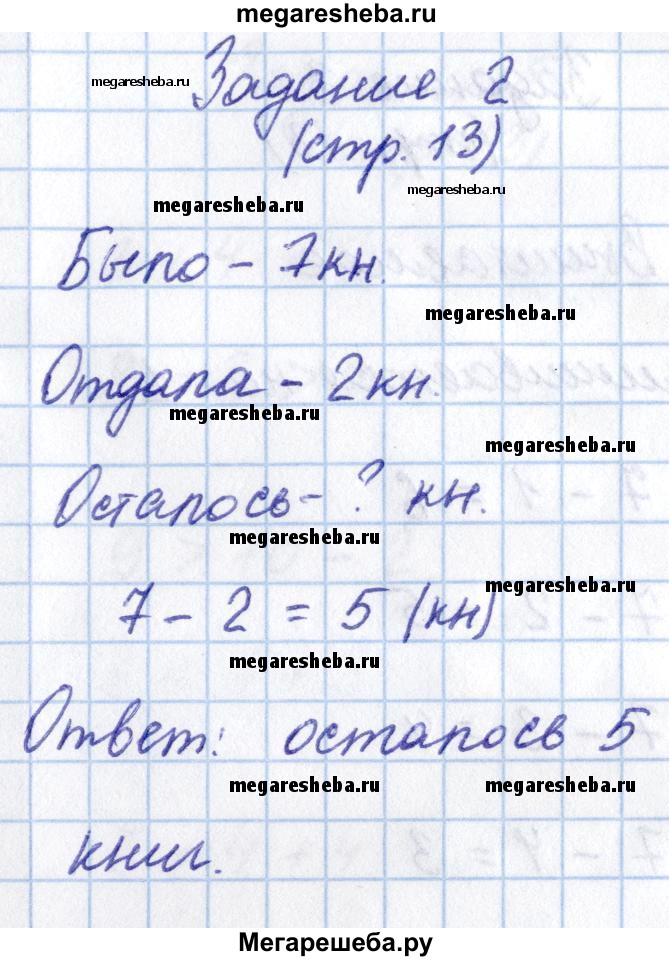 megaresheba.ru
megaresheba.ru
Задание 2
(стр. 13)
megaresheba.ru
megaresheba.ru
Было – 7 кн.
megaresheba.ru
Отдала – 2 кн.
megaresheba.ru
megaresheba.ru
Осталось – ? кн.
megaresheba.ru
megaresheba.ru
7 – 2 = 5 (кн)
megaresheba.ru
Ответ: осталось 5
megaresheba.ru megaresheba.ru
книг.
Мегарешеба.ру